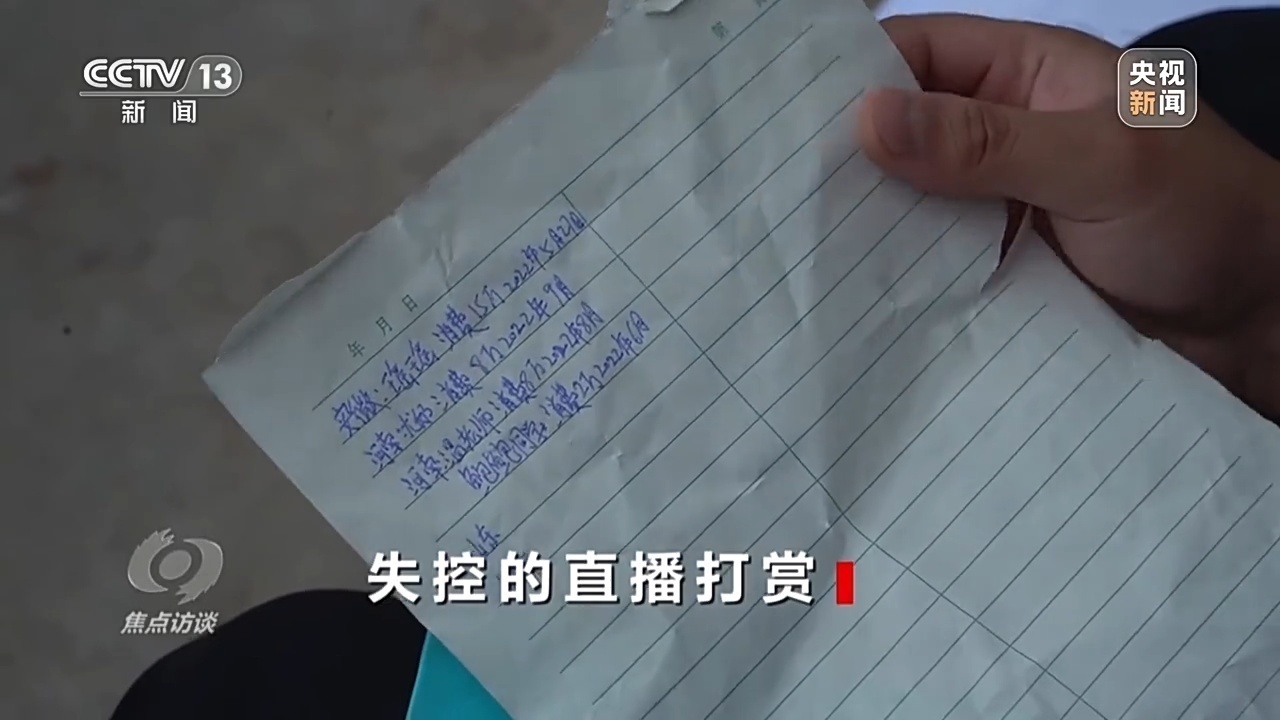 CCTV 13
新闻
央视
新闻
年 月 日
安徽:瑶瑶 消费15万 2022年5月27日
河南:尤如:消费8万 2022年9月
河南:温老师:消费8万 2022年8月
鲍鲍同学:消费2万 2022年6月
山东
失控的直播打赏
焦点访谈